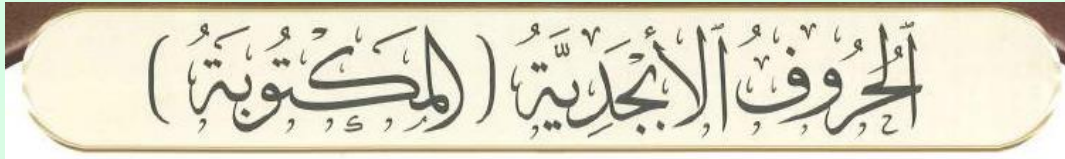 ٱلْحُرُوفُ ٱلْأَبْجَدِيَّةُ (الْمَكْتُوبَةُ)